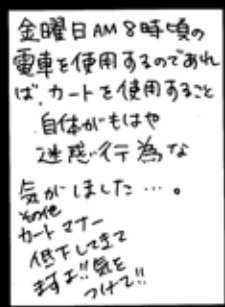 金曜日AM8時頃の
電車を使用するのであれ
ば、カートを使用すること
自体がもはや
迷惑行為な
気がしました…。
その他
カートマナー
低下してきて
ます!!気を
つけて!!